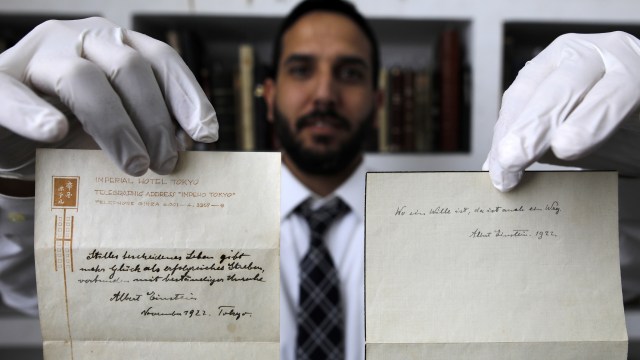 帝國ホテル
IMPERIAL HOTEL TOKYO
TELEGRAPHIC ADDRESS "IMPEHO TOKYO"
TELEPHONE GINZA
Stilles bescheidenes Leben gibt
mehr Glück als erfolgreiches Streben,
verbunden mit beständiger Unruhe.
Albert Einstein
November 1922. Tokyo.
Wo ein Wille ist, da ist auch ein Weg.
Albert Einstein. 1922.